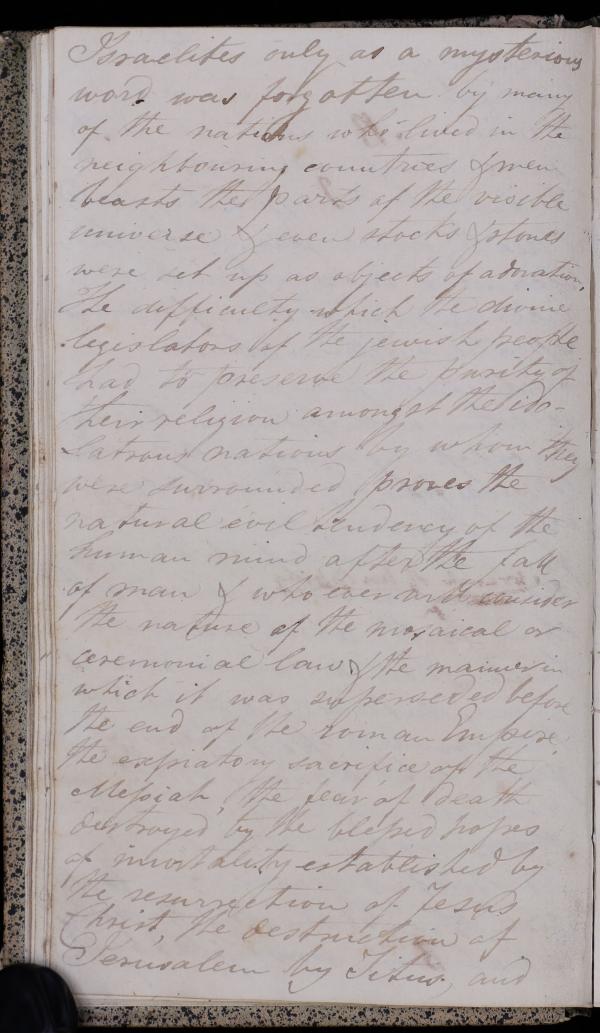 Israelites only as a mysterious
word was forgotten by many
of the nations who lived in the
neighbouring countries & men
beasts the parts of the visible
universe & even stocks & stones
were set up as objects of adoration,
The difficulty which the divine
legislators of the jewish people
had to preserve the purity of
their religion amongst the ido-
latrous nations by whom they
were surrounded proves the
natural evil tendency of the
human mind after the fall
of man & who ever will consider
the nature of the mosaical or
ceremonial law & the manner in
which it was superseded before
the end of the roman Empire,
the expiatory sacrifice of the
Messiah, the fear of death
destroyed by the blessed hopes
of imortality established by
the resurrection of Jesus
Christ, the destruction of
Jerusalem by Titus, and